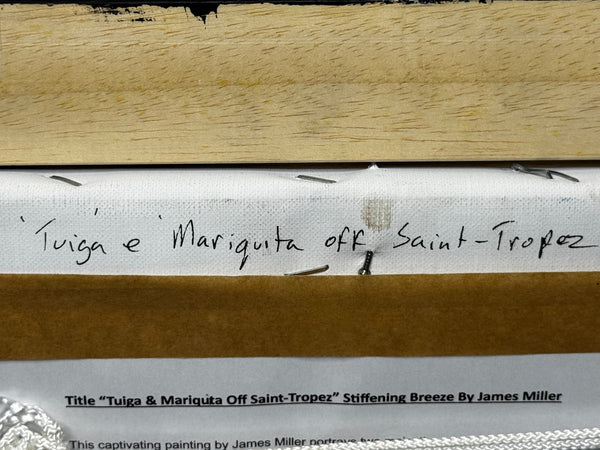 'Tuiga' e 'Mariquita off Saint-Tropez
Title "Tuiga & Mariquita Off Saint-Tropez" Stiffening Breeze By James Miller
This captivating painting by James Miller portrays two